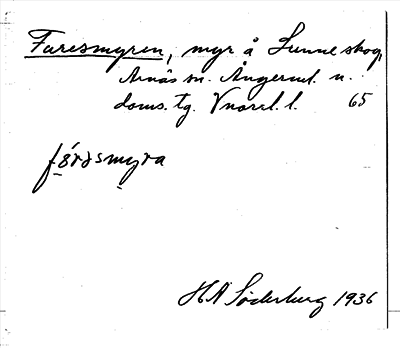 Faresmyren, myr å Sunneskog,
Arnäs sn. Ångerml. n.
doms. tg. Vnorrl. l. 65
HA Söderberg 1936